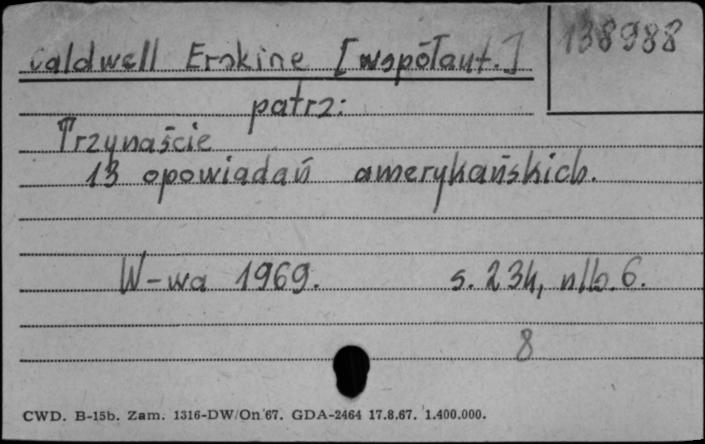 Caldwell Erskine [współaut.] 138988
patrz:
Trzynaście
13 opowiadań amerykańskich.
W-wa 1969. s. 234, nlb. 6.
8
CWD. B-15b. Zam. 1316-DW/On 67. GDA-2464 17.8.67. 1.400.000.